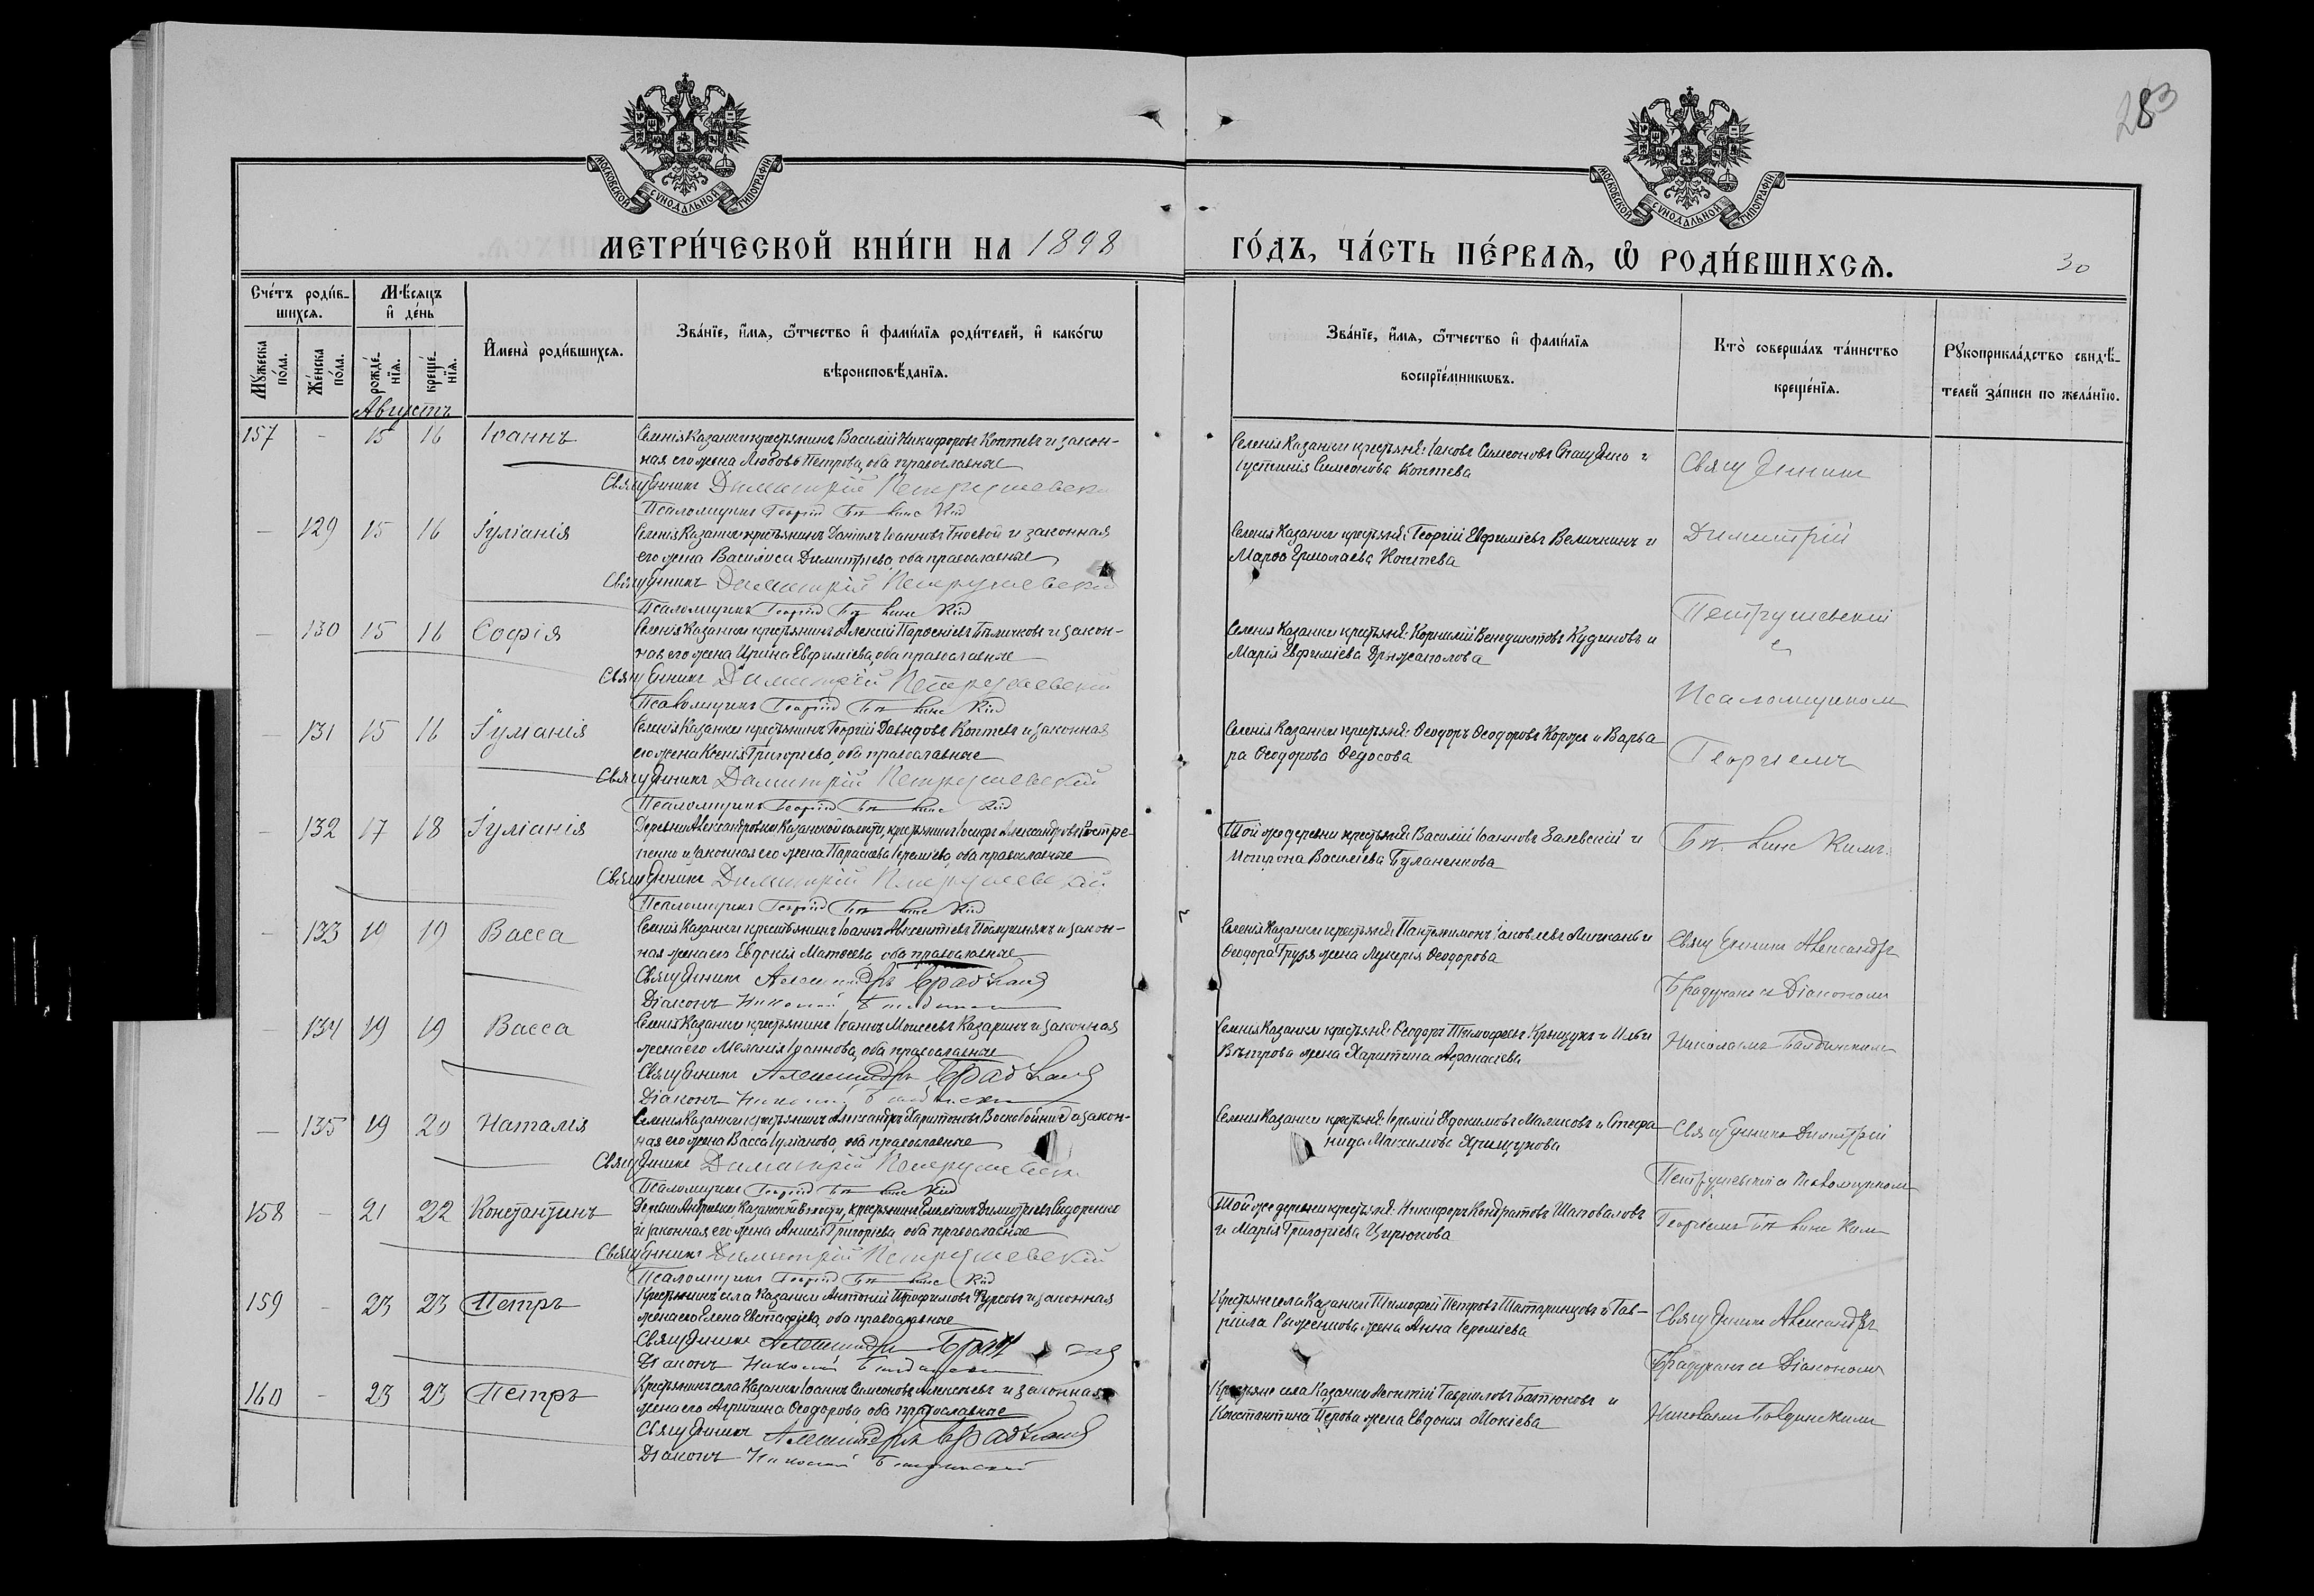 283
МОСКОВСКОЙ СѴНОДАЛЬНОЙ ТИПОГРАФІИ
МОСКОВСКОЙ СѴНОДАЛЬНОЙ ТИПОГРАФІИ
МЕТРИ́ЧЕСКОЙ КНИ́ГИ НА 1898
ГО́ДЪ, ЧА́СТЬ ПЕ́РВАѦ, Ѡ҆ РОДИ́ВШИХСѦ.
30
Сче́тъ роди́в-
шихсѧ.
Мꙋ́жеска по́ла.
Же́нска по́ла.
М́ѣсѧцъ
и҆ де́нь
рожде́-нїѧ.
креще́-нїѧ.
И҆мена̀ роди́вшихсѧ.
Зва́нїе, и҆́мѧ, ѻ҆́тчество и҆ фами́лїѧ роди́телей, и҆ како́гѡ
вѣроисповѣ́данїѧ.
Зва́нїе, и҆́мѧ, ѻ҆́тчество и҆ фами́лїѧ
воспрїе́мникѡвъ.
Кто̀ соверша́лъ та́инство
креще́нїѧ.
Рꙋкоприкла́дство свидѣ́-
телей за́писи по жела́нїю.
Августъ
157 - 15 16 Іоаннъ
Селенія Казанки крестьянинъ Василій Никифоровъ Коптевъ и закон-
ная его жена Любовь Петрова, оба православные
Священникъ Димитрій Петрушевскій
Псаломщикъ Георгій
Селенія Казанки крестьяне: Іаковъ Симеоновъ и
Іустинія Симеонова Коптева
Священник
- 129 15 16 Іуліанія
Селенія Казанки крестьянинъ Даніилъ Іоанновъ Гноевой и законная
его жена Василиса Димитріева, оба православные
Священникъ Димитрій Петрушевскій
Псаломщикъ Георгій
Селенія Казанки крестьяне: Георгій Евфиміевъ Величкинъ и
Марфа Ермолаева Коптева
Димитрій
- 130 15 16 Софія
Селенія Казанки крестьянинъ Алексій Парфеніевъ Бѣличковъ и закон-
ная его жена Ирина Евфиміева, оба православные
Священникъ Димитрій Петрушевскій
Псаломщикъ Георгій
Селенія Казанки крестьяне: Корнилій Венедиктовъ Кудиновъ и
Марія Евфиміева Држаполова
Петрушевскій
с
Псаломщиком
- 131 15 16 Іуліанія
Селенія Казанки крестьянинъ Георгій Давидовъ Коптевъ и законная
его жена Ксенія Григоріева, оба православные
Священникъ Димитрій Петрушевскій
Псаломщикъ Георгій
Селенія Казанки крестьяне: Ѳеодоръ Ѳеодоровъ Коржъ и Варва-
ра Ѳеодорова Ѳедосова
Георгіемъ
- 132 17 18 Іуліанія
Деревни Александровки Казанской волости, крестьянинъ Іосифъ Александровъ
и законная его жена Параскева Іереміева, оба православные
Священникъ Димитрій Петрушевскій
Псаломщикъ Георгій
Той же деревни крестьяне: Василій Іоанновъ Залевскій и
Мотрона Василіева Буланенкова
- 133 19 19 Васса
Селенія Казанки крестьянинъ Іоаннъ Авксентіевъ и закон-
ная жена его Евдокія Матѳеева, оба православные
Священникъ Александръ
Діаконъ Николай
Селенія Казанки крестьяне: Пантелимонъ Іаковлевъ Личканъ и
Ѳеодора Груя жена Лукерія Ѳеодорова
Священник Александръ
с Діаконом
- 134 19 19 Васса
Селенія Казанки крестьянинъ Іоаннъ Моисеевъ Казаринъ и законная
жена его Меланія Іоаннова, оба православные
Священникъ Александръ
Діаконъ Николай
Селенія Казанки крестьяне: Ѳеодоръ Тимофеевъ Крищукъ и Ильи
Вѣтрова жена Харитина Аѳанасіева
Николаемъ Балдинским
- 135 19 20 Наталія
Селенія Казанки крестьянинъ Александръ Харитоновъ Воскобойник и закон-
ная его жена Васса Іуліанова, оба православные
Священникъ Димитрій
Псаломщикъ Георгій
Селенія Казанки крестьяне: Іеремій Евдокимовъ Маликовъ и Стефа-
нида Максимова Хрищукова
Священникъ Димитрій
Петрушевскій с Псаломщиком
158 - 21 22 Константинъ
Деревни Андреевки, Казанской волости, крестьянинъ Емеліанъ Димитріевъ Сидоренко
и законная его жена Анисія Григоріева, оба православные
Священникъ Димитрій Петрушевскій
Псаломщикъ Георгій
Той же деревни крестьяне: Никифоръ Кондратовъ Шаповаловъ
и Марія Григоріева Цирюкова
Георгіемъ
159 - 23 23 Петръ
Крестьянинъ села Казанки Антоній Трофимовъ Фурсовъ и законная
жена его Елена Евстафіева, оба православные
Священникъ Александръ
Діаконъ Николай
Крестьяне села Казанки Тимофей Петровъ Татаринцовъ и Гав-
ріила Рыженкова жена Анна Іереміева
Священник Александръ
с Діаконом
160 - 23 23 Петръ
Крестьянинъ села Казанки Іоаннъ Симеоновъ Алексѣевъ и законная
жена его Агрипина Ѳеодорова, оба православные
Священникъ Александръ
Діаконъ Николай
Крестьяне села Казанки Леонтій Гавриловъ Батюковъ и
Константина Перова жена Евдокія Мокіева
Николаем Балдинским